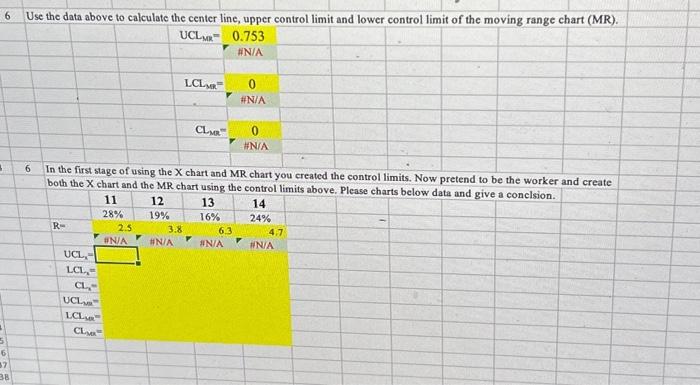 6 Use the data above to calculate the center line, upper control limit and lower control limit of the moving range chart (MR).
UCLMR= 0.753
#N/A
LCLMR= 0
#N/A
CLMR= 0
#N/A
6 In the first stage of using the X chart and MR chart you created the control limits. Now pretend to be the worker and create
both the X chart and the MR chart using the control limits above. Please charts below data and give a conclsion.
11 12 13 14
28% 19% 16% 24%
R= 2.5 3.8 6.3 4.7
#N/A #N/A #N/A #N/A
UCLx=
LCLx=
CLx=
UCLMR=
LCLMR=
CLMR=
6
37
38